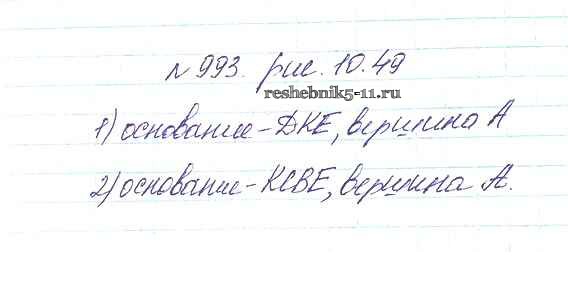 № 993. рис. 10.49
reshebnik5-11.ru
1) основание - ДКЕ, вершина А
2) основание - КСВЕ, вершина А.